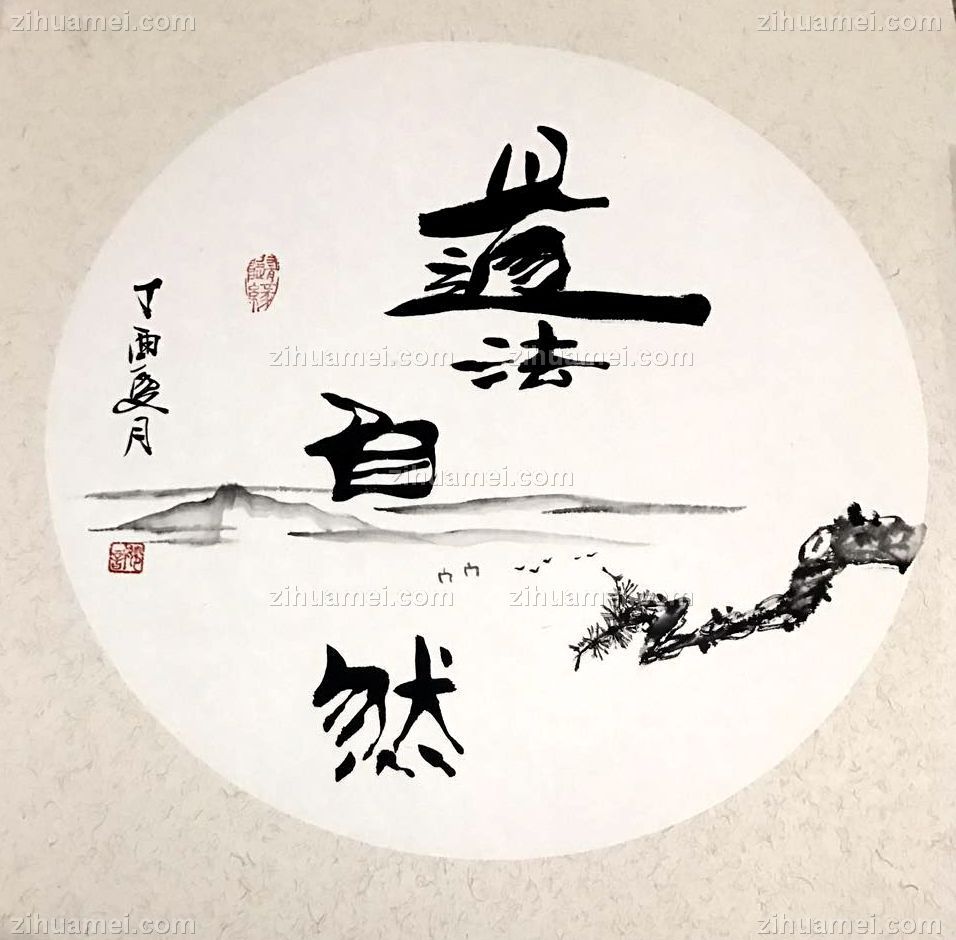 道法
自然
丁酉夏月
zihuamei.com
zihuamei.com
zihuamei.com
zihuamei.com
zihuamei.com
zihuamei.com
zihuamei.com
zihuamei.com
zihuamei.com